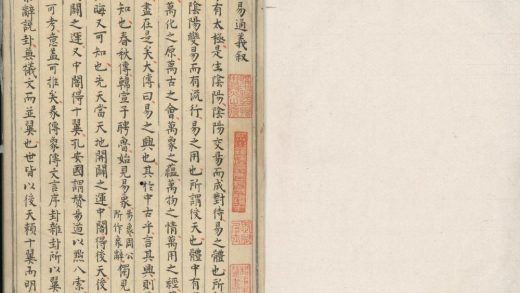 易通義叙
有太極是生陰陽陰陽交易而成對待易之體也所
陰陽變易而有流行易之用也所謂後天也體中有
萬化之原萬古之會萬象之蘊萬物之情萬用之經
盡在是矣大傳曰易之興也其於中古乎言其興則
知也春秋傳韓宣子聘魯始見易象易象周公所作象辭獨見
晦又可知也先天當天地開闢之運中闇得後天後
闢之運又中闇得十翼孔安國謂贊易道以黜八索
可考意蓋可推矣彖傳象傳文言序卦雜卦所以翼
辭說卦與儀文而並翼也世皆以後天賴十翼而明